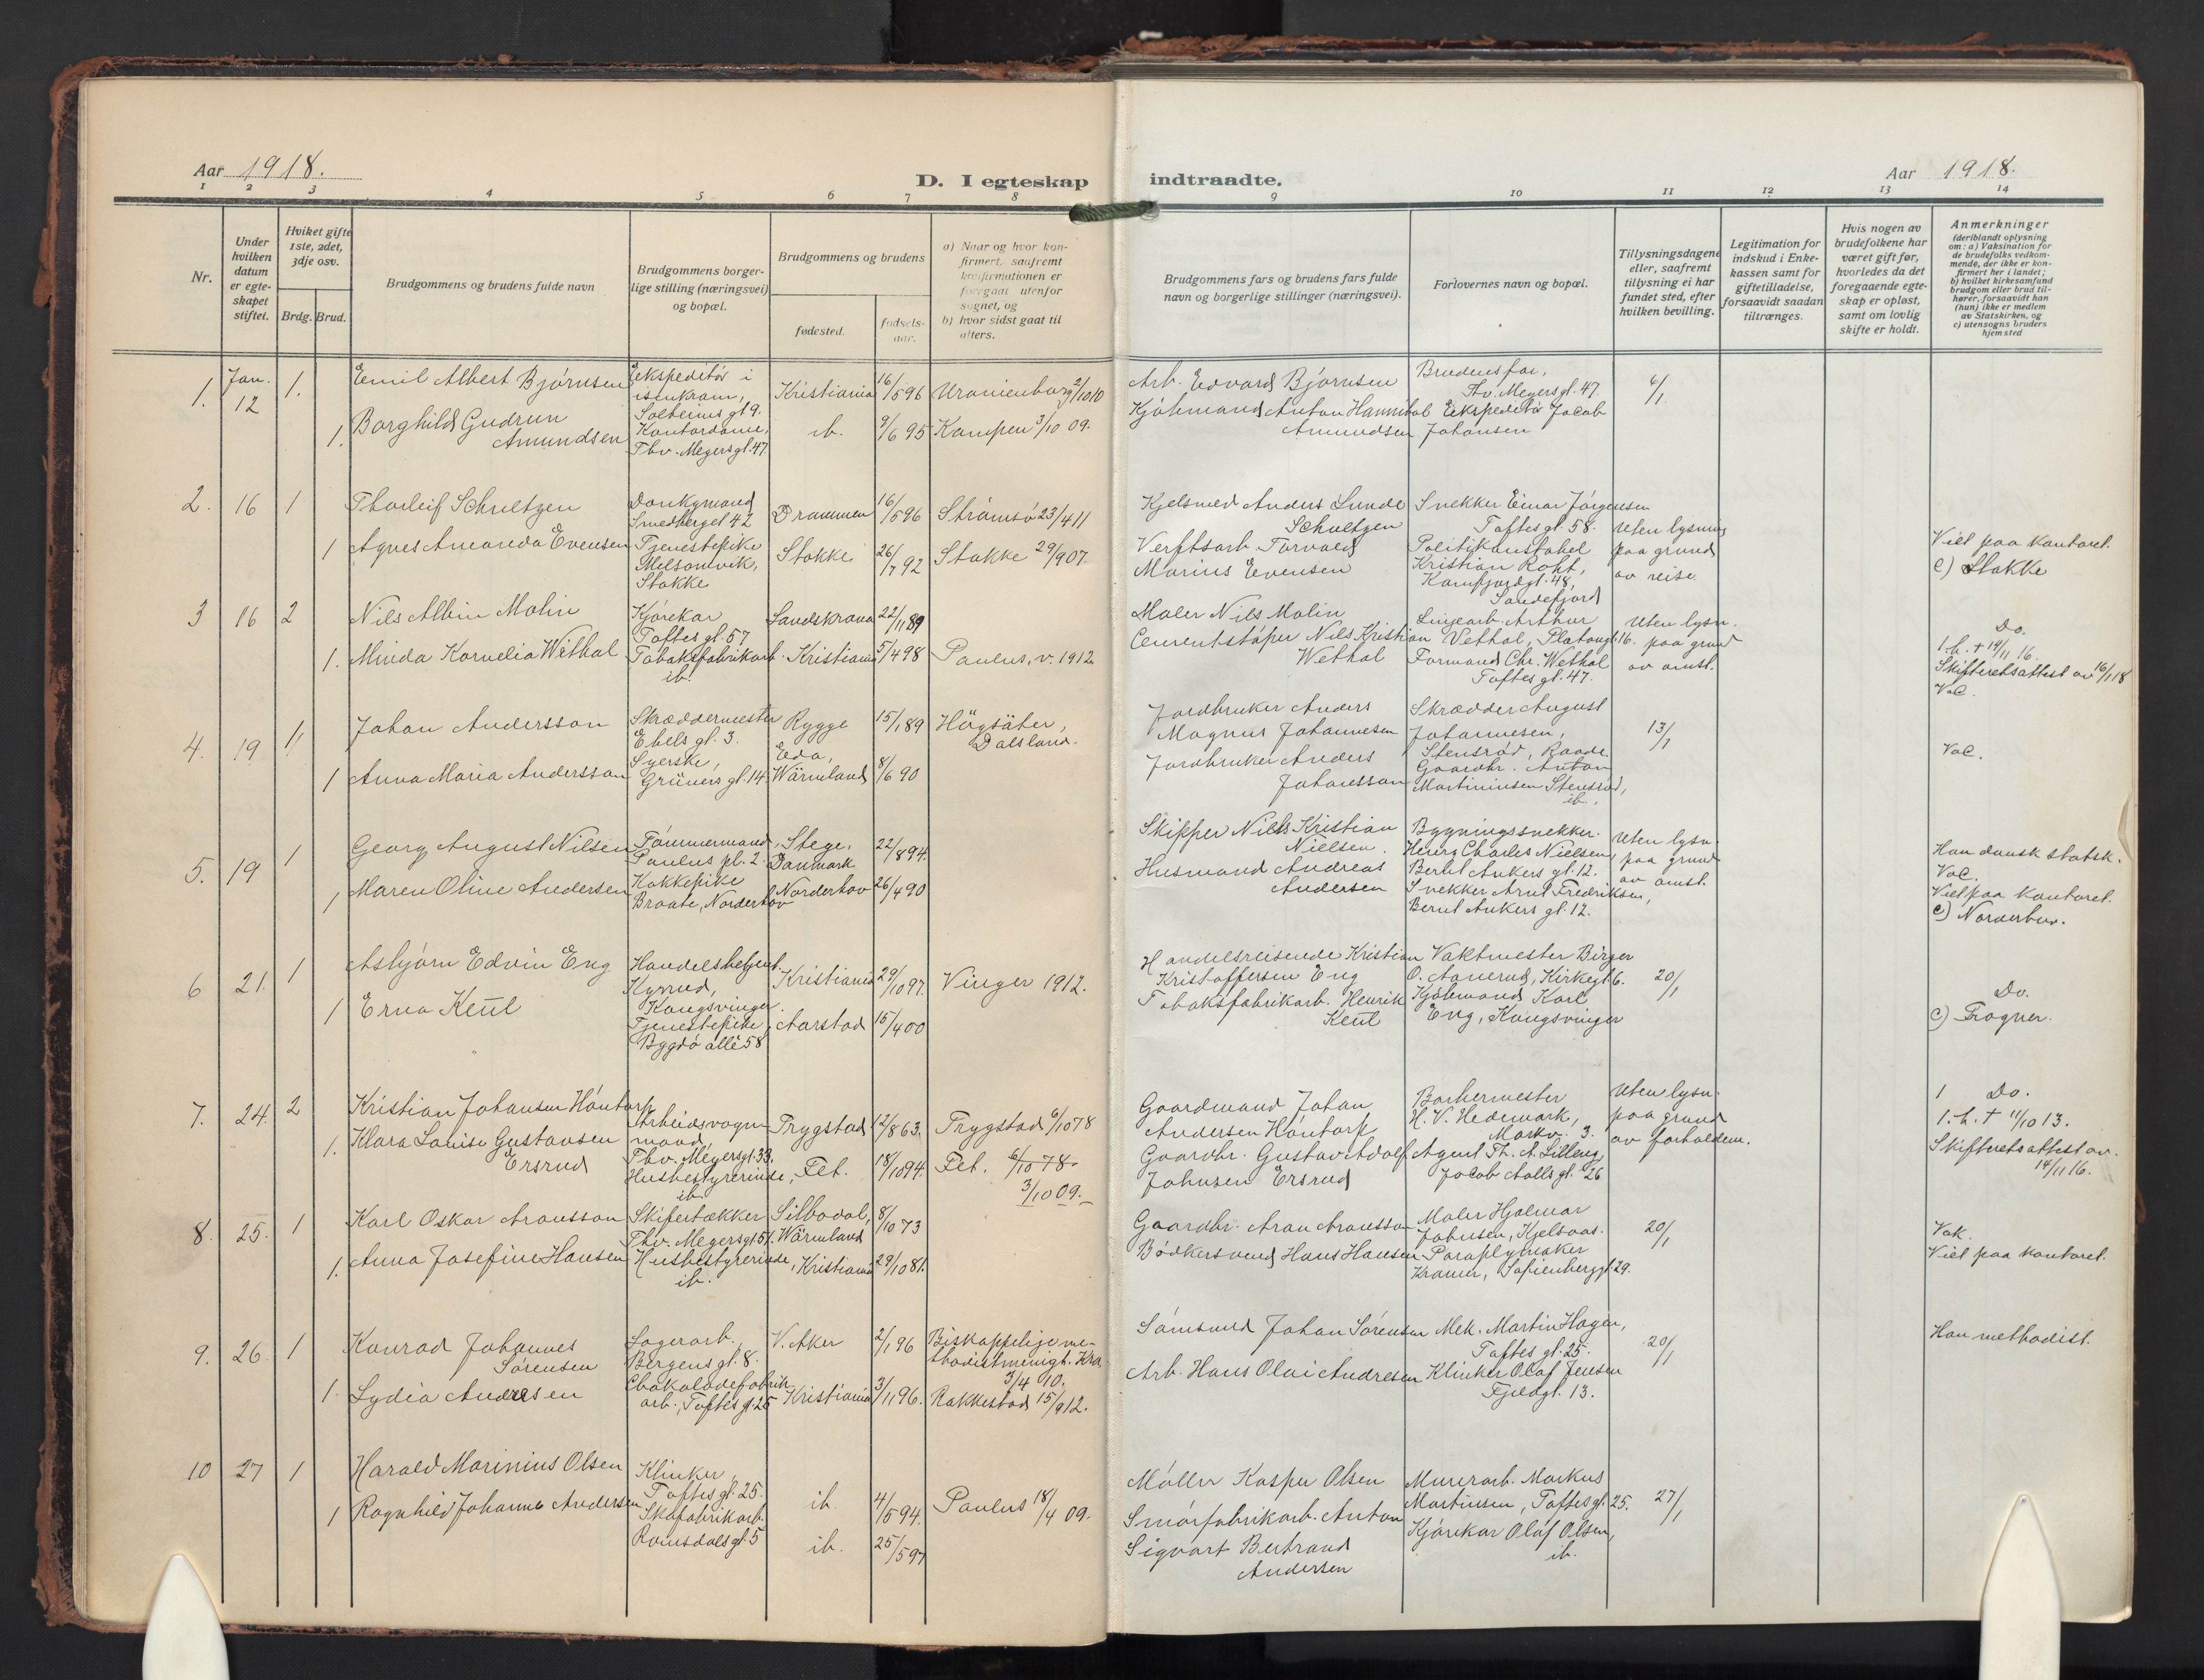 Aar 1918.
D. I egteskap indtraadte.
Aar 1918.
1 2 3 4 5 6 7 8 9 10 11 12 13 14
Nr.
Under hvilken datum er egteskapet stiftet.
Hvilket gifte 1ste, 2det, 3dje osv.
Brdg. Brud.
Brudgommens og brudens fulde navn
Brudgommens borgerlige stilling (næringsvei) og bopæl.
Brudgommens og brudens
fødested.
fødselsaar.
a) Naar og hvor konfirmert, saafremt konfirmationen er foregaat utenfor sognet, og
b) hvor sidst gaat til alters.
Brudgommens fars og brudens fars fulde navn og borgerlige stillinger (næringsvei).
Forlovernes navn og bopæl.
Tillysningsdagene eller, saafremt tillysning ei har fundet sted, efter hvilken bevilling.
Legitimation for indskud i Enkekassen samt for giftetilladelse, forsaavidt saadan tiltrænges.
Hvis nogen av brudefolkene har været gift før, hvorledes da det foregaaende egteskap er opløst, samt om lovlig skifte er holdt.
Anmerkninger
(deriblandt oplysning om: a) Vaksination for de brudefolks vedkommende, der ikke er konfirmert her i landet; b) hvilket kirkesamfund brudgom eller brud tilhører, forsaavidt han (hun) ikke er medlem av Statskirken, og c) utensogns bruders hjemsted
1. Jan. 12 1. Emil Albert Bjørnsen
Ekspeditør i isenkram, Solheims gt 9.
Kristiania 16/5 96 Uranienborg 2/10 10
Arb. Edvard Bjørnsen
Brudens far, Thv. Meyersgt. 47.
6/1
1. Borghild Gudrun Amundsen
Kontordame, Thv. Meyersgt. 47
ib. 9/6 95 Kampen 3/10 09.
Kjøbmand Anton Hannibal Amundsen
Ekspeditør Jacob Johansen
2. 16 1 Thorleif Schultzen
Donkymand Smedberget 42
Drammen 16/5 96 Strømsø 23/4 11
Kjelsmed Anders Lunde Schultzen
Snekker Einar Jørgensen Toftesgt. 58.
Uten lysning paa grund av reise
1 Agnes Amanda Evensen
Tjenestepike Melsomvik, Stokke
Stokke 26/7 92 Stokke 29/9 07.
Verftsarb. Torvald Marius Evensen
Politikonstabel Kristian Roht, Kamfjordgt. 48, Sandefjord
Viet paa kontoret.
c) Stokke
3 16 2 Nils Albin Malin
Kjørekar Toftes gt. 57
Landskrona 22/11 89
Maler Nils Malin
Linjearb. Arthur Vethal, Platougt. 16.
Uten lysn. paa grund av omst.
1. Minda Kornelia Wethal
Tobaksfabrikarb. ib.
Kristiania 5/4 98 Paulus, v. 1912
Cementstøper Nils Kristian Wethal
Formand Chr. Wethal Toftes gt. 47.
Do.
1. h. + 14/11 16.
Skifteretsattest av 16/1 18
Vac.
4. 19 1 Johan Andersson
Skræddermester Ebels gt. 3.
Rygge 15/1 89 Högsäter, Dalsland.
Jordbruker Anders Magnus Johannesen
Skrædder August Johannesen, Stensrød, Raade.
13/1
1 Anna Maria Andersson
Syerske, Grüners gt. 14.
Eda, Wärmland 8/6 90
Jordbruker Anders Johansson
Gaardbr. Anton Martiniusen Stensrød, ib.
Vac.
5. 19 1 Georg August Nilsen
Tømmermand, Paulus pl. 2.
Stege, Danmark 22/8 94.
Skipper Niels Kristian Nielsen.
Bygningssnekker. Henry Charles Nielsen, Bernt Ankers gt. 12.
Uten lysn. paa grund av omst.
1 Maren Oline Andersen
Kokkepike Braate, Norderhov
Norderhov 26/4 90
Husmand Andreas Andersen
Snekker Arnt Fredriksen, Bernt Ankers gt. 12.
Han dansk statsb.
Vac.
Viet paa kontoret.
c) Norderhov.
6 21. 1 Asbjørn Edvin Eng
Handelsbetjent. Kyrrud, Kongsvinger.
Kristiania 29/10 97. Vinger 1912.
Handelsreisende Kristian Kristoffersen Eng
Vaktmester Birger O. Aanerud, Kirkegt. 6.
20/1
1 Erna Keül
Tjenestepike, Bygdø allé 58
Aarstad 15/4 00
Tobaksfabrikarb. Henrik Keül
Kjøbmand Karl Eng, Kongsvinger
Do.
c) Frogner.
7. 24. 2 Kristian Johansen Høntorp
Arbeidsvognmand, Thv. Meyersgt. 33.
Trygstad 12/8 63. Trygstad 6/10 78
Gaardmand Johan Andersen Høntorp
Barbermester H. V. Hedemark, Markv. 3.
Uten lysn. paa grund av forholdene.
1. Klara Louise Gustavsen Ersrud
Husbestyrerinde, ib.
Fet. 18/10 94. Fet. 6/10 78
3/10 09.
Gaardbr. Gustav Adolf Johnsen Ersrud
Agent Th. A. Lilleng, Jacob Aalls gt. 26
1 Do.
1. h. + 11/10 13.
Skifteretsattest av. 14/11 16.
8. 25. 1 Karl Oskar Aronsson
Skifertækker Thv. Meyersgt 51.
Silbodal, Wärmland 8/10 73
Gaardbr. Aron Aronsson
Maler Hjalmar Johnsen, Kjelsaas.
20/1
1. Anna Josefine Hansen
Husbestyrerinde, ib.
Kristiania 29/10 81.
Bødkersvend Hans Hansen
Paraplymaker Kramer, Sofienberggt. 29.
Vak.
Viet paa kontoret.
9. 26. 1 Konrad Johannes Sørensen
Lagerarb., Bergens gt. 8.
V. Aker 2/1 96 Biskoppelige methodistmenigh. Kra. 3/4 10.
Sømsmed Johan Sørensen
Mek. Martin Hagen, Toftes gt. 25.
20/1
1. Lydia Andresen
Chokoladefabrikarb., Toftes gt. 25
Kristiania 3/11 96. Rakkestad 15/9 12.
Arb. Hans Olai Andresen
Klinker Olaf Jensen Fjeldgt. 13.
Han methodist.
10 27 1 Harald Marinius Olsen
Klinker, Toftes gt. 25.
ib. 4/5 94. Paulus 18/4 09.
Møller Kasper Olsen
Murerarb. Markus Martinsen, Toftes gt. 25.
27/1
1 Ragnhild Johanne Andersen
Skofabrikarb. Romsdals gt. 5
ib. 25/5 97
Smørfabrikarb. Anton Sigvart Bertrand Andersen
Kjørekar Olaf Olsen, ib.